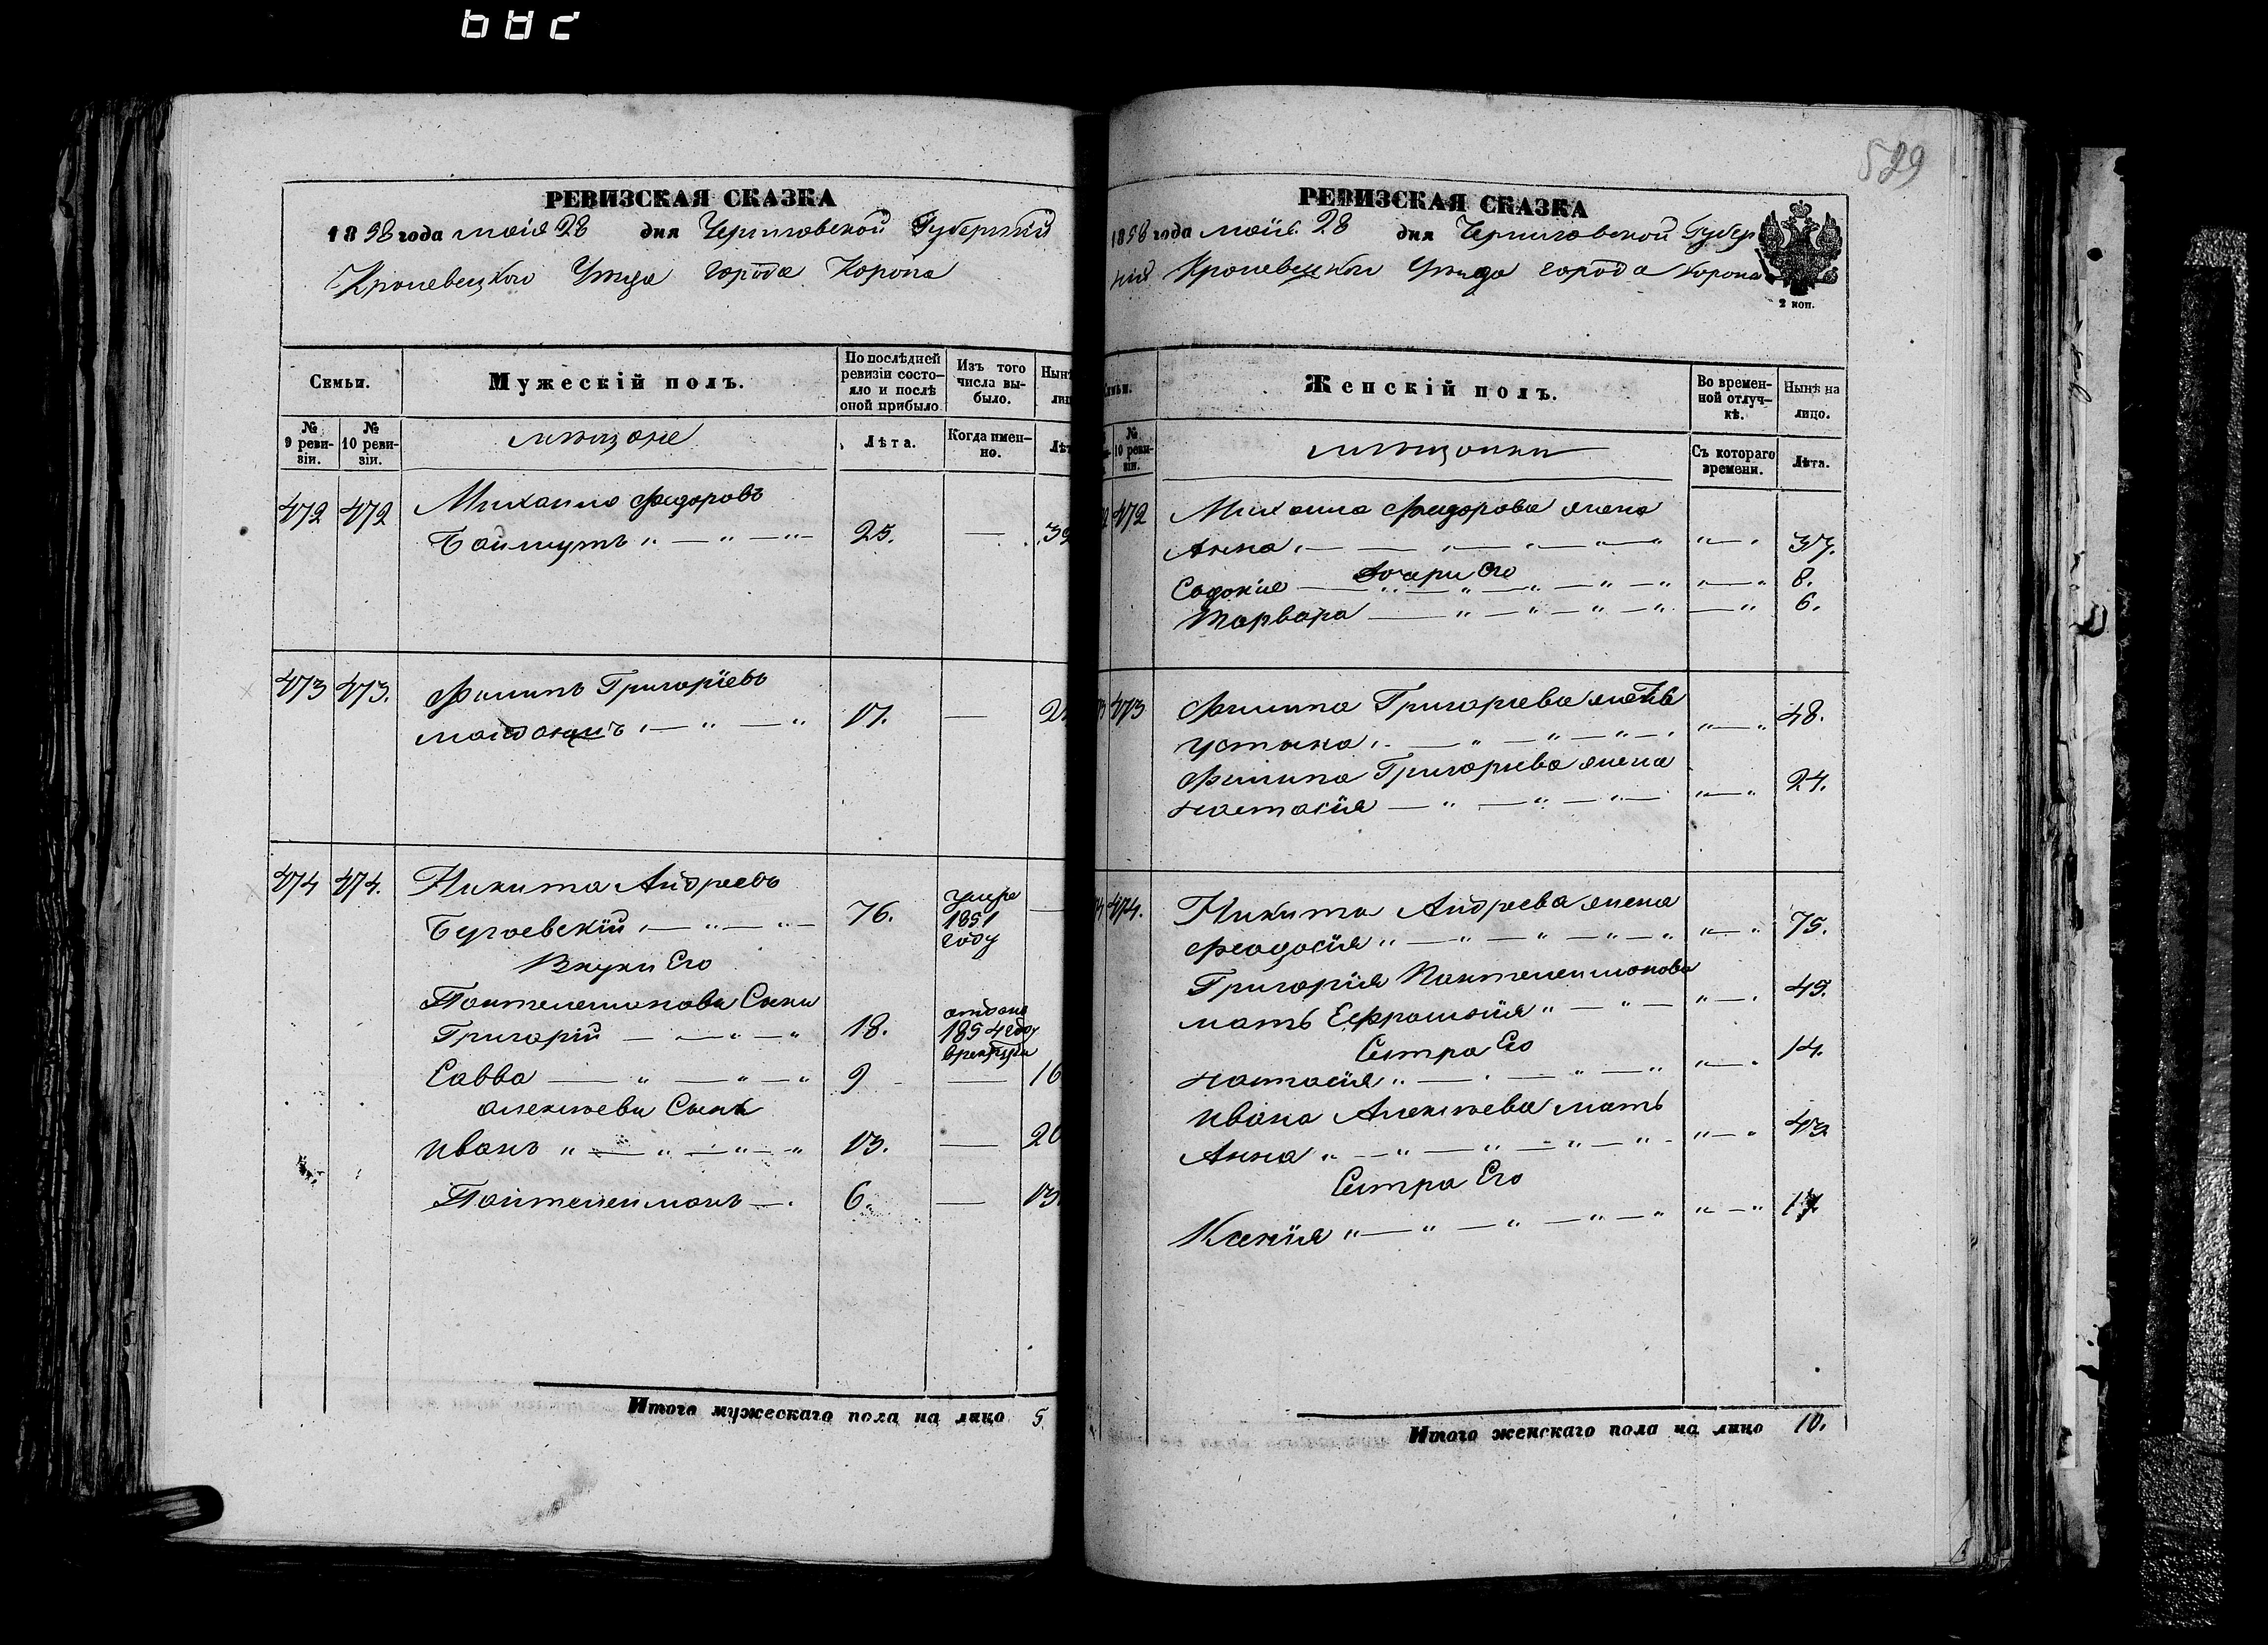 529
РЕВИЗСКАЯ СКАЗКА
1858 года маія 28 дня Черниговской Губерніи
Кролевецкого Уѣзда города Коропа
Семьи.
Мужескій полъ.
По послѣдней ревизіи состо-
яло и послѣ
оной прибыло.
Изъ того
числа вы-
было.
№
9 реви-
зіи.
№
10 реви-
зіи.
мѣщане
Лѣта.
Когда имен-
но.
472 472 Михаило Федоровъ
25. — 32
473 473. Филипъ Григоріевъ
17. —
474 474. Никита Андреевъ
Бугаевскій 76. умре 1851 году —
Внуки Его
Пантелеимонови Сыни
Григорій 18. отдано 1854 году врекруты
Савва 9 — 16
Алексѣеви Сыны
Иванъ 13. — 20
Пантелеимонъ 6. — 13
Итого мужескаго пола на лицо 5
РЕВИЗСКАЯ СКАЗКА
1858 года маія 28 дня Черниговской Губер
ніи Кролевецкого Уѣзда города Коропа
2 коп.
Женскій полъ.
Во времен-
ной отлуч-
кѣ.
Нынѣ на
лицо.
№
10 реви-
зіи.
мѣщанки
Съ котораго
времени.
Лѣта.
472 Михаила Федорова жена
Анна 37.
Дочери Его
8.
Варвара 6.
473 Филипа Григорьева мать
Устина 48.
Филипа Григорьева жена
Настасія 24.
474. Никиты Андреева жена
Феодосія 75.
Григорія Пантелеимонова
мать Ефросинія 49.
Сестра Его
Настасія 14.
Ивана Алексѣева мать
Анна 43
Сестра Его
Ксенія 17
Итого женскаго пола на лицо 10.